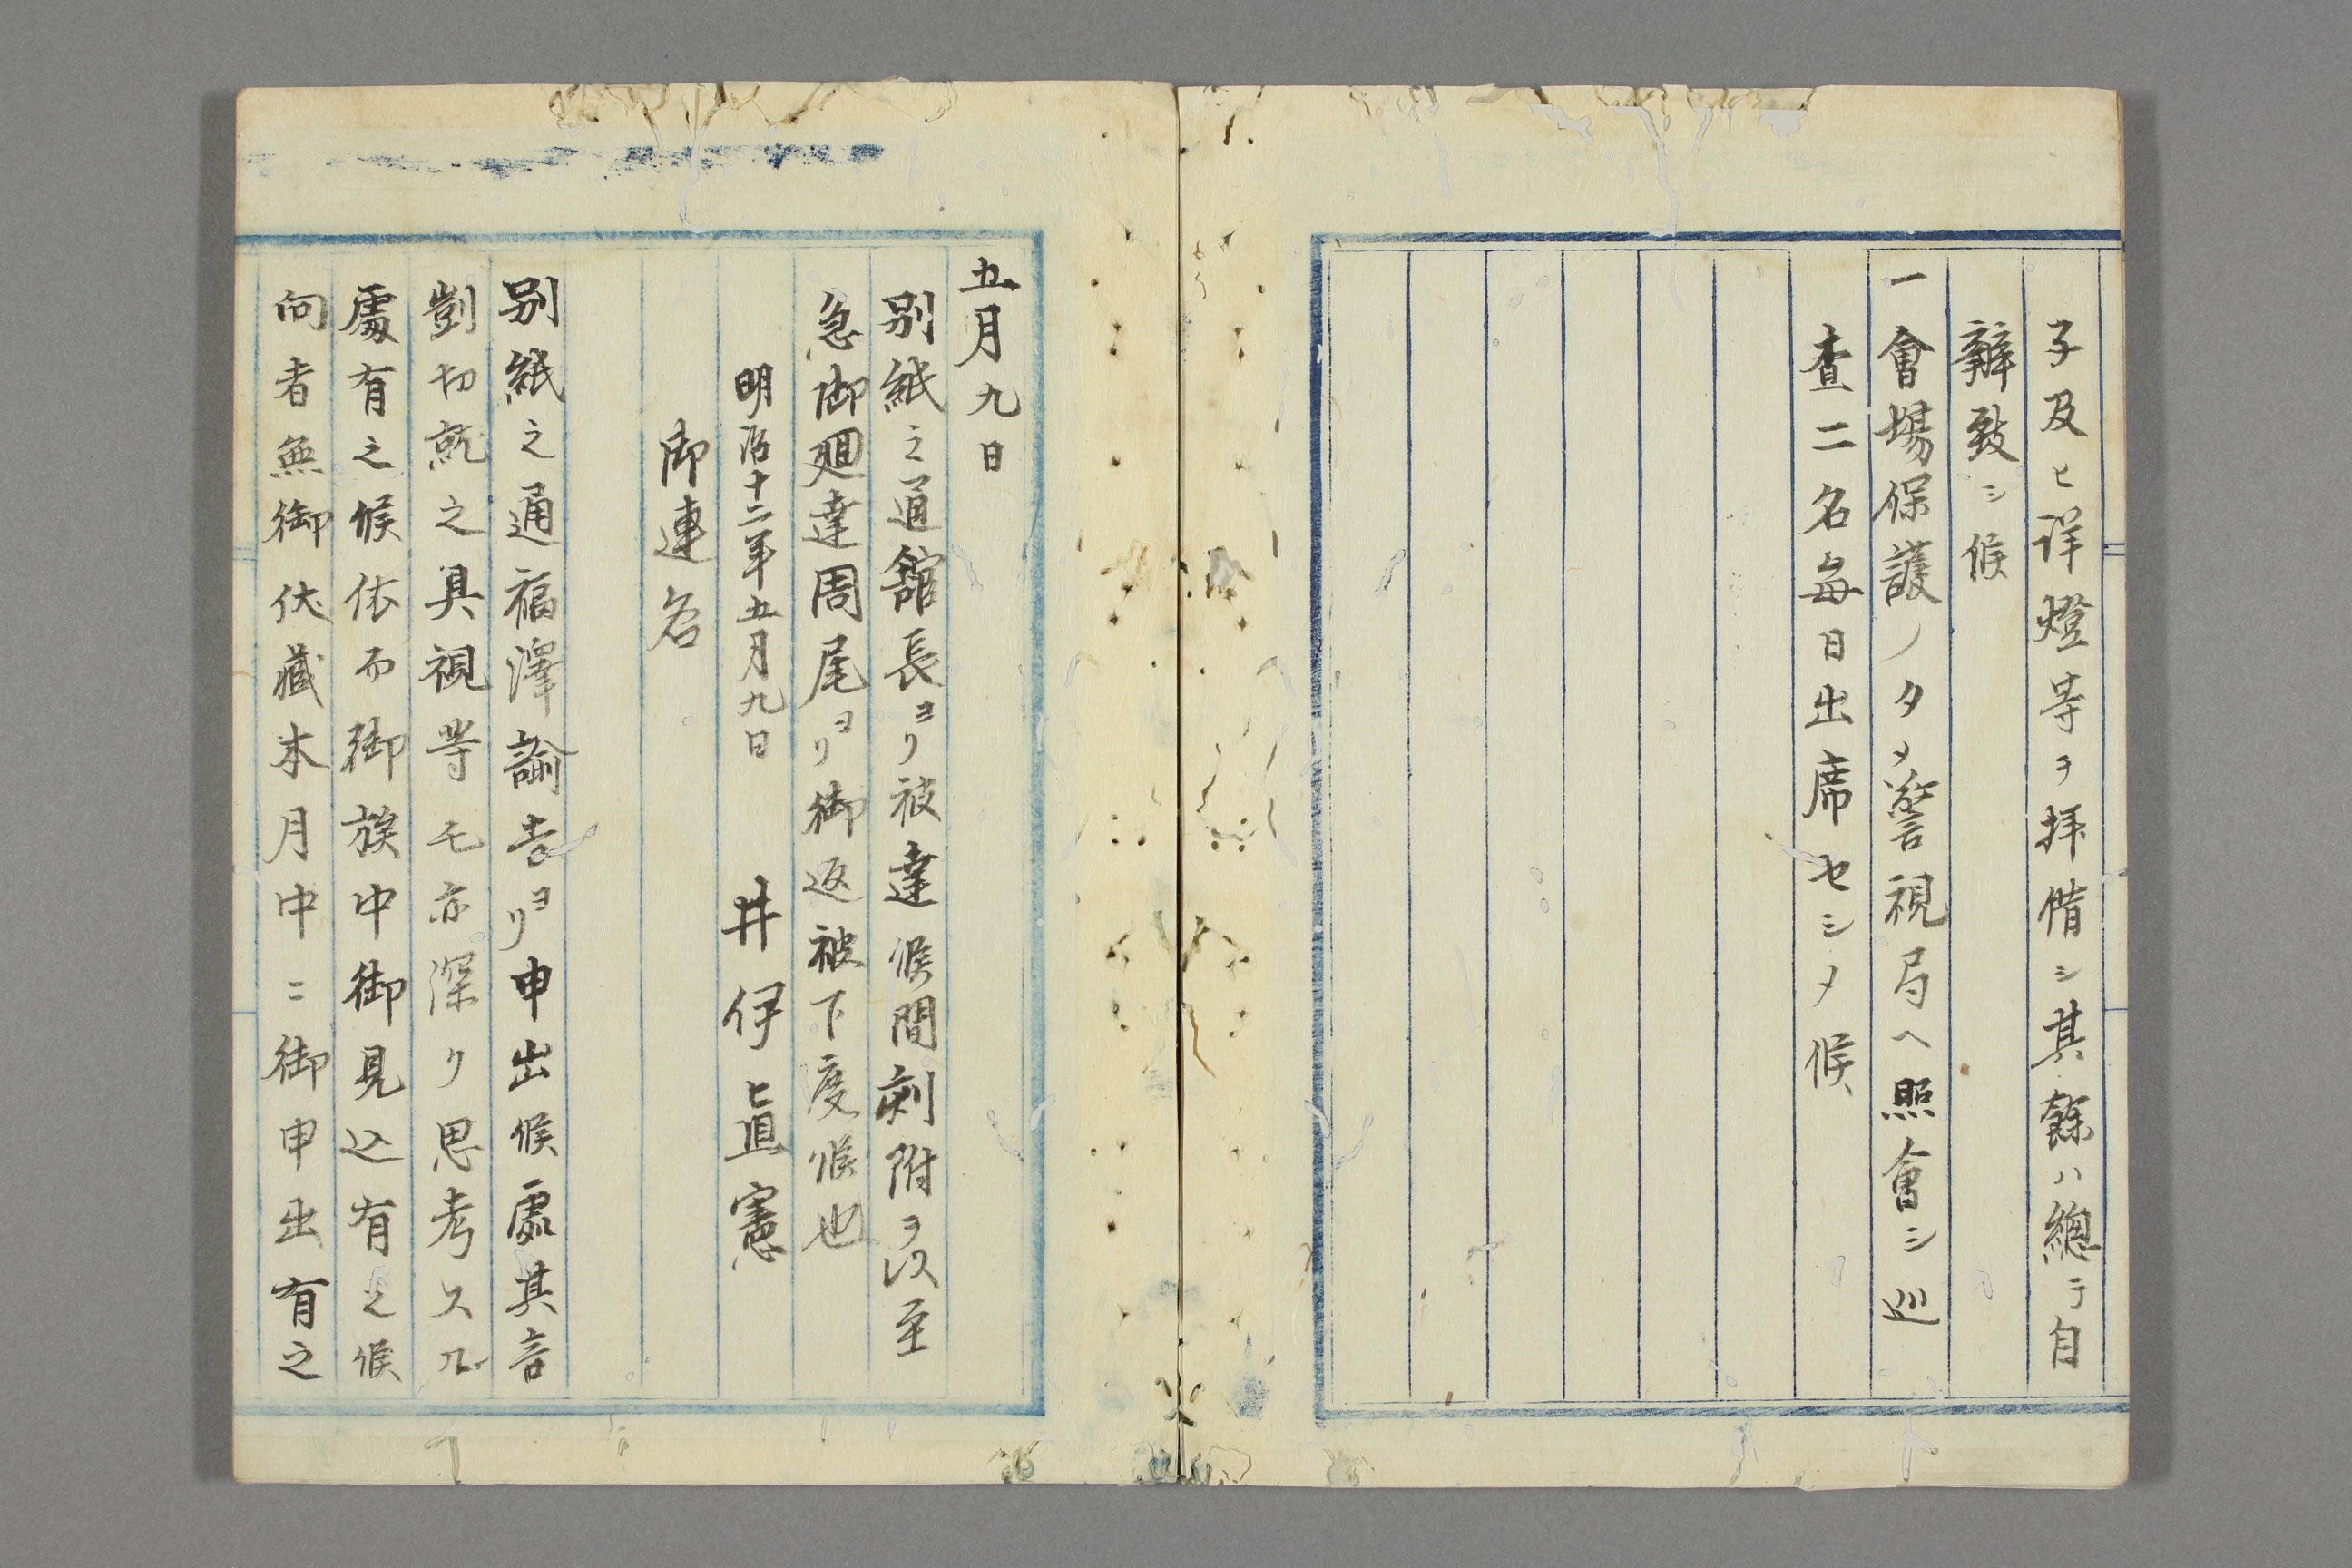 子及ヒ洋燈等ヲ拝借シ其餘ハ總テ自
辨致シ候
一會場保護ノタメ警視局ヘ照會シ巡
査二名毎日出席セシメ候
五月九日
別紙之通舘長ヨリ被達候間刻附ヲ以至
急御廻達周尾ヨリ御返被下度候也
明治十二年五月九日 井伊直憲
御連名
別紙之通福澤諭吉ヨリ申出候處其言
剴切就之具視等モ亦深ク思考スル
處有之候依而御族中御見込有之候
向者無御伏藏本月中ニ御申出有之